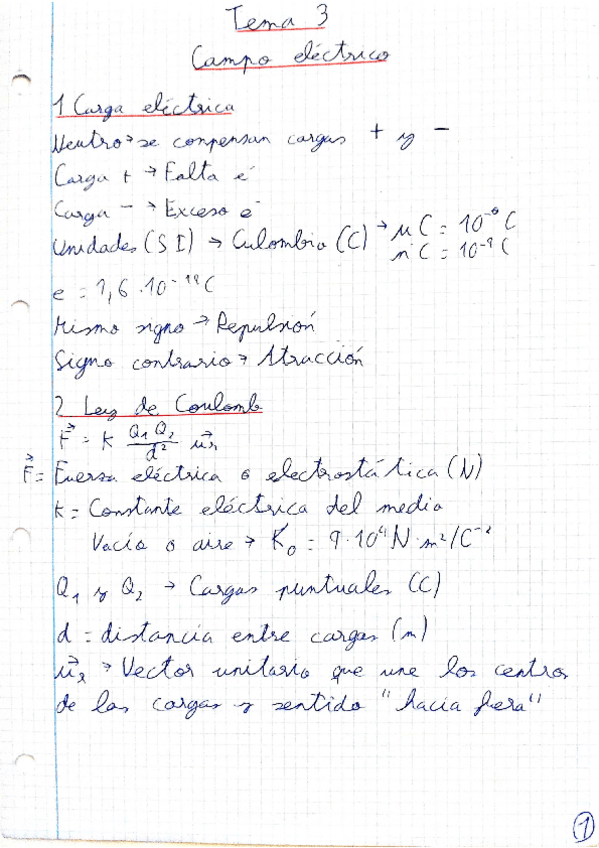 Tema 3
Campo eléctrico
1 Carga eléctrica
Neutro → se compensan cargas + y -
Carga + → Falta e⁻
Carga - → Exceso e⁻
Unidades (SI) → Culombio (C) → μC = 10⁻⁶ C
nC = 10⁻⁹ C
e = 1,6 · 10⁻¹⁹ C
Mismo signo → Repulsión
Signo contrario → Atracción
2 Ley de Coulomb
F⃗ = K Q₁ Q₂ / d² u⃗r
F⃗ = Fuerza eléctrica o electrostática (N)
K = Constante eléctrica del medio
Vacío o aire → K₀ = 9 · 10⁹ N · m² / C⁻²
Q₁ y Q₂ → Cargas puntuales (C)
d = distancia entre cargas (m)
u⃗r → Vector unitario que une los centros
de las cargas y sentido "hacia fuera"
1